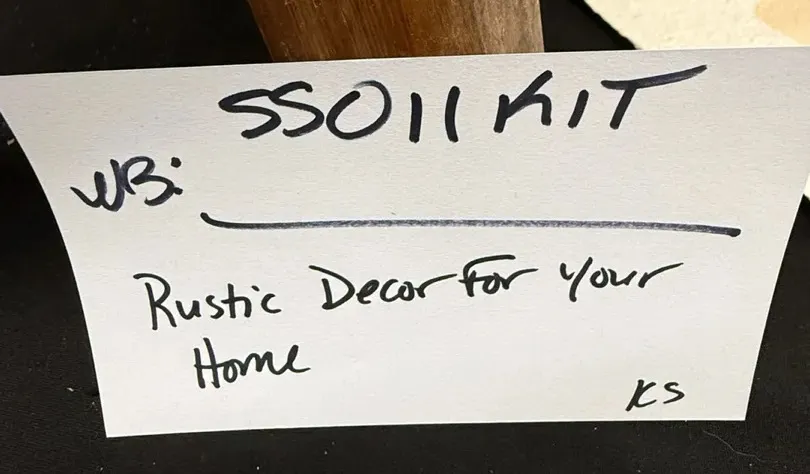 SSO11 KIT
WB:
Rustic Decor For your
Home
KS